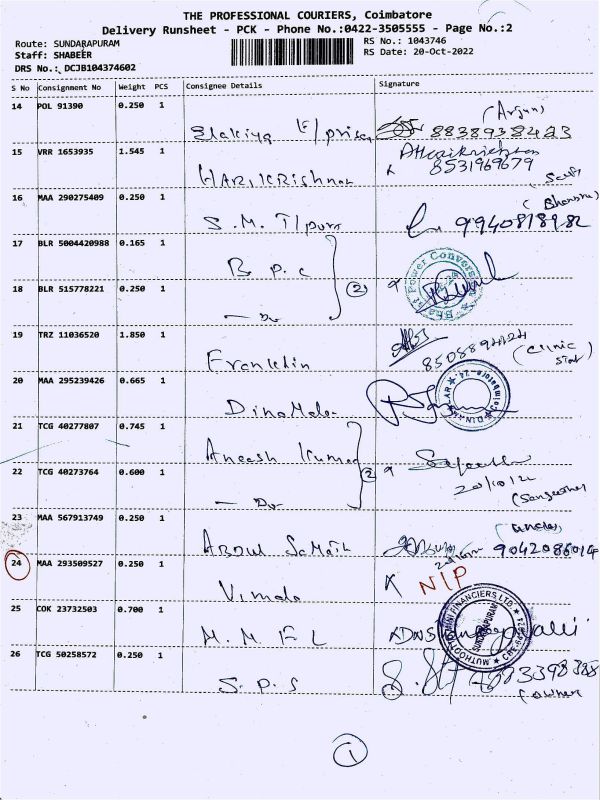 THE PROFESSIONAL COURIERS, Coimbatore
Delivery Runsheet - PCK - Phone No.:0422-3505555 - Page No.:2
Route: SUNDARAPURAM RS No.: 1043746
Staff: SHABEER RS Date: 20-Oct-2022
DRS No.: DCJB104374602
S No Consignment No Weight PCS Consignee Details Signature
14 POL 91390 0.250 1
(Arjun)
Elakiya E/prises 8838938423
15 VRR 1653935 1.545 1
HARIKRISHNAN 8531969679
16 MAA 290275409 0.250 1
S.M. T/pura 9940818982
17 BLR 5004420988 0.165 1
B P C
18 BLR 515778221 0.250 1 (2)
— Do
19 TRZ 11036520 1.850 1
Franklin 8508894124 (Clinic
20 MAA 295239426 0.665 1
DinaMalar DINAMALAR
21 TCG 40277807 0.745 1
Aneesh Kumar (2)
22 TCG 40273764 0.600 1
— Do 20/10/22
23 MAA 567913749 0.250 1
Abdul Samath 9042086014
24 MAA 293509527 0.250 1
Vimala N/P
25 COK 23732503 0.700 1
M. M F L SUNDRAPURAM
26 TCG 50258572 0.250 1
S. P. S (owner
1